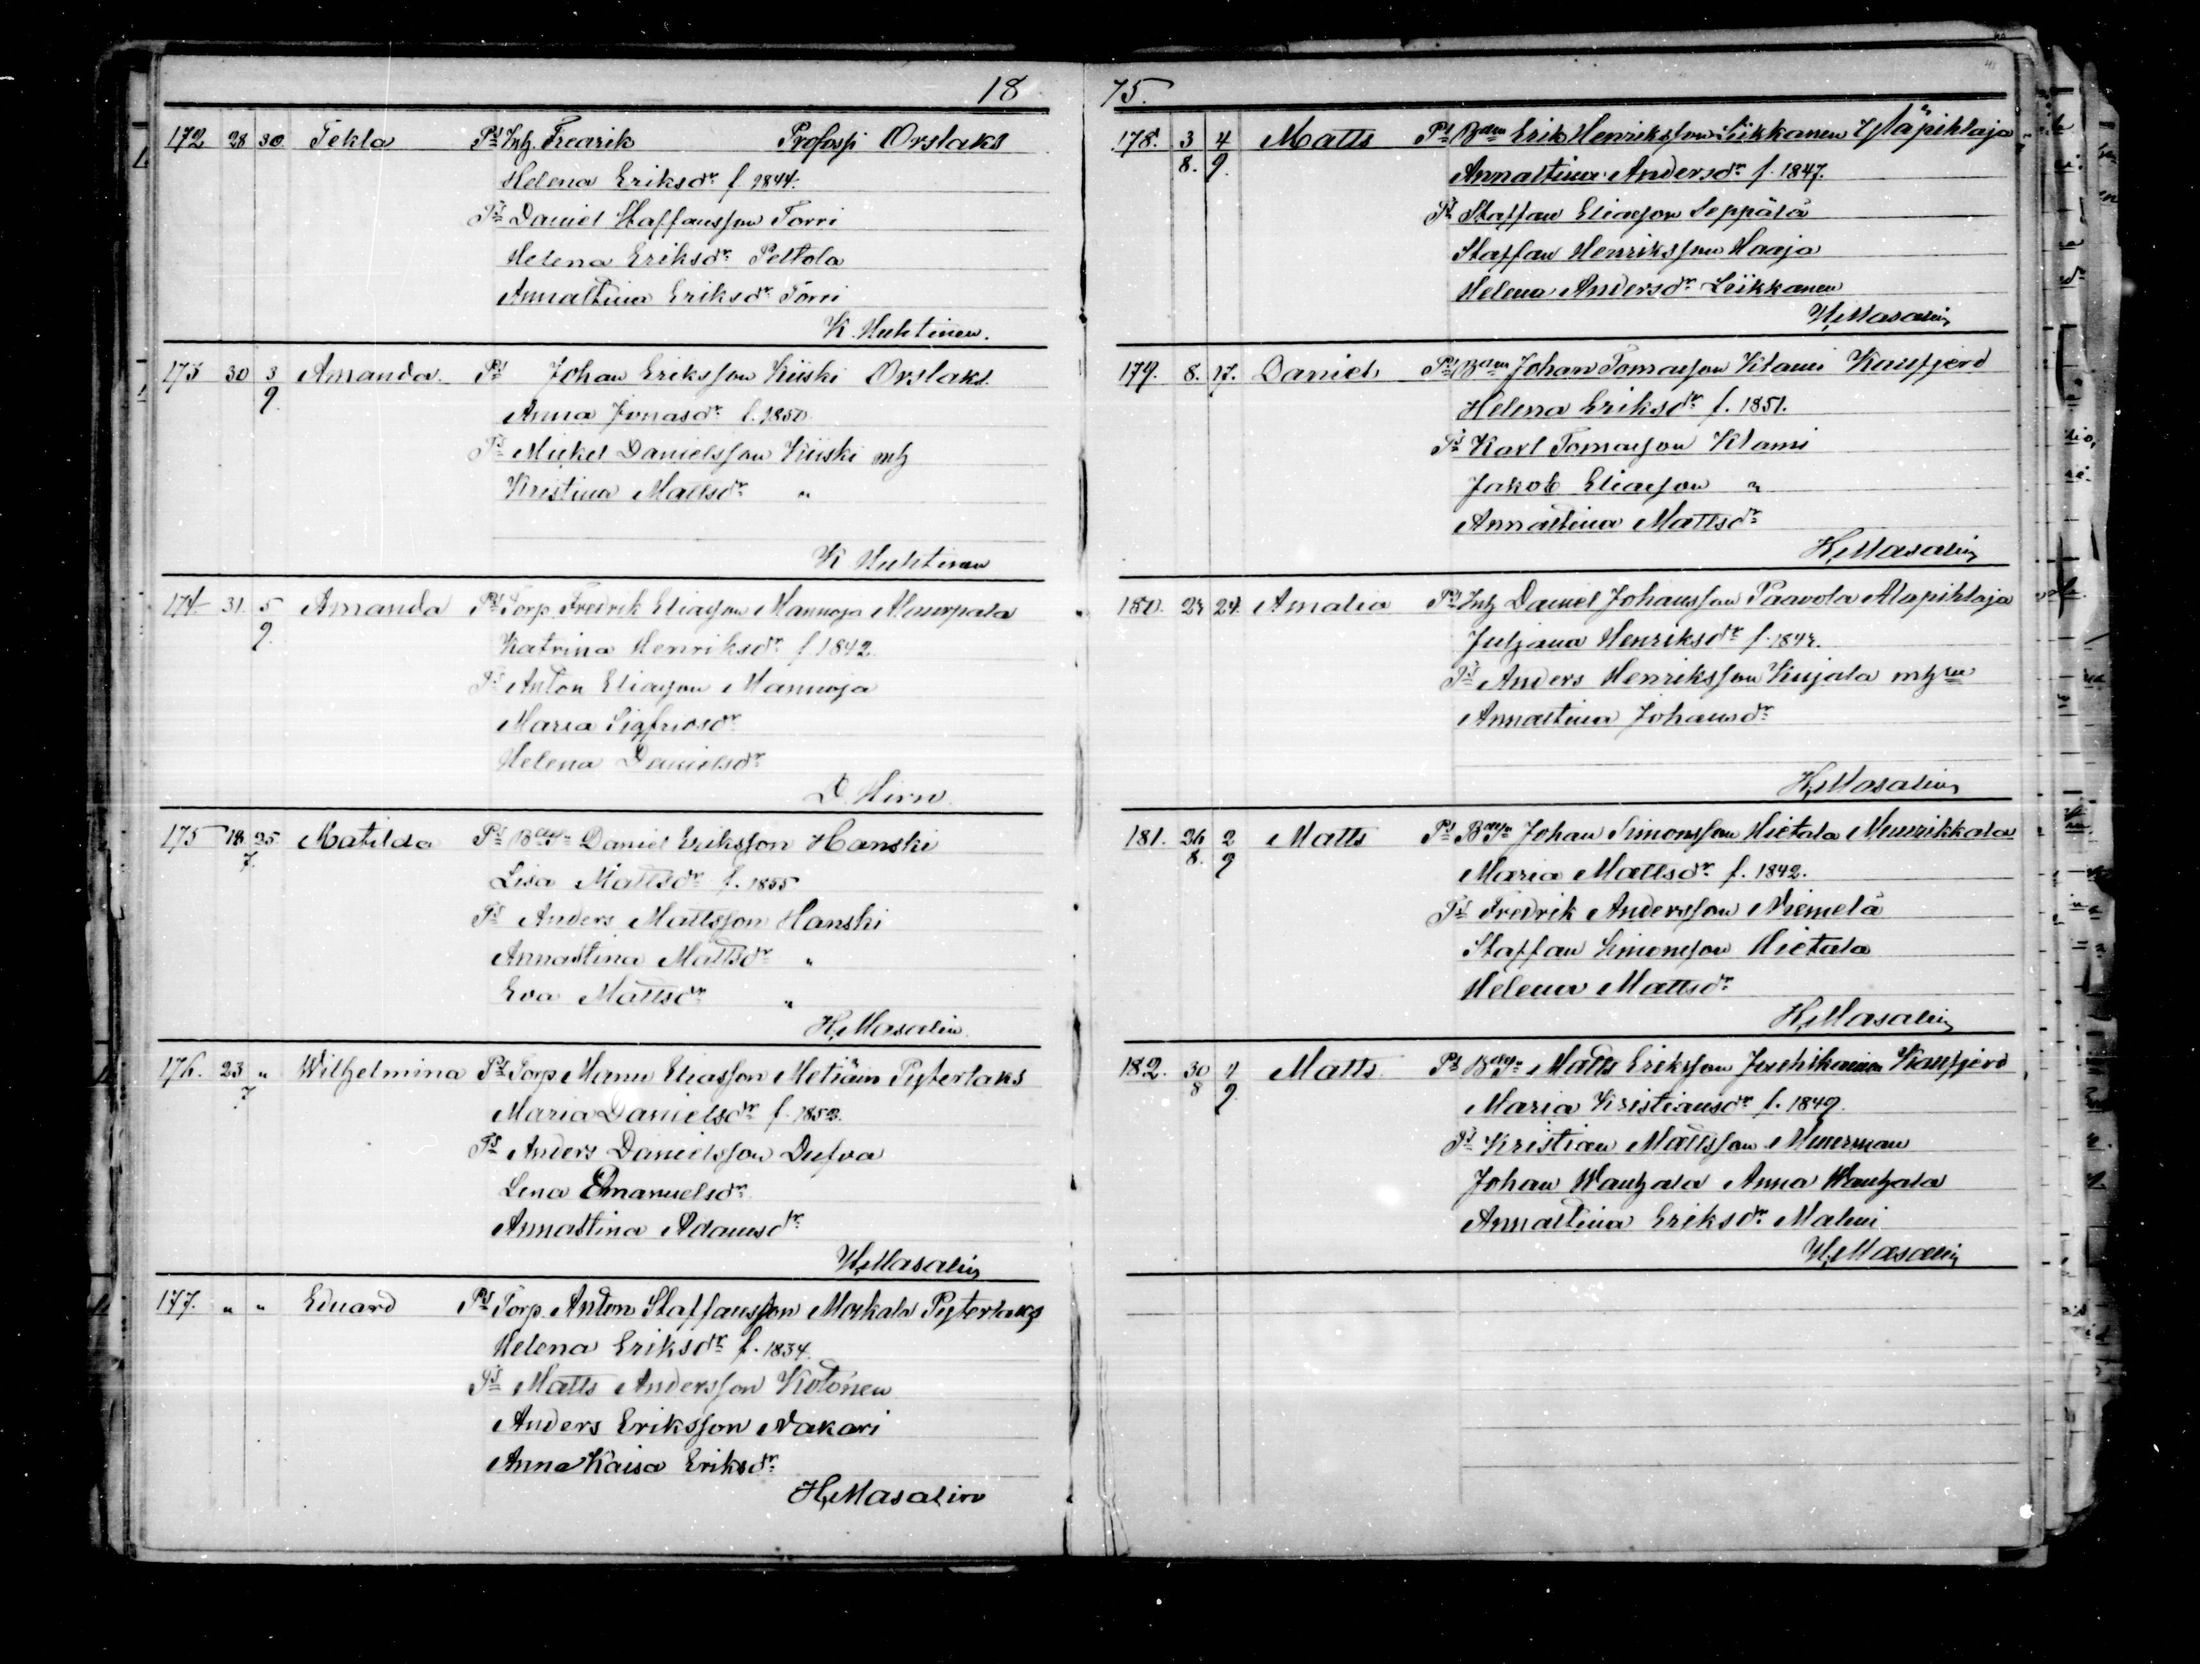 18
172 28 30. Tekla Ps Inh Fredrik Profossi Orslaks
Helena Eriksdr f. 1844.
Ts Daniel Staffansson Torri
Helena Eriksdr Peltola
Annastina Eriksdr Torri
K. Huhtinen.
173 30 3/9 Amanda. Ps Johan Eriksson Kiiski Orslaks.
Anna Jonasdr f. 1850.
Ts Mickel Danielsson Kiiski mh
Kristina Mattsdr "
K Huhtinen
174 31. 5/9. Amanda Ps Torp Fredrik Eliasson Mannoja
Katrina Henriksdr f 1842.
Ts Anton Eliasson Mannoja
Maria Sigfridsdr
Helena Danielsdr
D. Hirn.
175 18/7. 25 Matilda Ps Daniel Eriksson Hanski
Lisa Mattsdr f. 1855
Ts Anders Mattsson Hanski
Annastina Mattsdr "
Eva Mattsdr "
H. Masalin.
176. 23/7 " Wilhelmina Ps Torp Manu Eliasson Pyterlaks
Maria Danielsdr f. 1852.
Ts Anders Danielsson Dufva
Lena Emanuelsdr
Annastina Adamsdr
H. Masalin
177. " " Eduard Ps Torp. Anton Staffansson Pyterlaks
Helena Eriksdr f. 1834.
Ts Matts Andersson Kotonen
Anders Eriksson Nakari
Anna Kaisa Eriksdr
H. Masalin
75.
178. 3/8. 4/9. Matts Ps Bdn Erik Henriksson Liikkanen
Annastina Andersdr f. 1847.
Ts Staffan Eliasson Seppälä
Staffan Henriksson Haaja
Helena Andersdr Liikkanen
H. Masalin
179. 8. 17. Daniel Ps Bdn Johan Tomasson Klami Kausfjerd
Helena Eriksdr f. 1851.
Ts Karl Tomasson Klami
Jakob Eliasson "
Annastina Mattsdr
H. Masalin
180. 24. Amalia Ps Inh Daniel Johansson Paavola Alapihlaja
Juljana Henriksdr
Ts Anders Henriksson Kujala
Annastina Johansdr
H. Masalin
181. 26/8. 2/9 Matts Ps Johan Simonsson Hietala Muurikkala
Maria Mattsdr f. 1842.
Ts Fredrik Andersson Niemelä
Staffan Simonsson Hietala
Helena Mattsdr
H. Masalin
182. 30/8 Matts. Ps Matts Eriksson Kausfjerd
Maria Kristiansdr f. 1849.
Ts Kristian Mattsson Muurman
Johan Wanhala Anna Wanhala
Annastina Eriksdr Malmi
H. Masalin